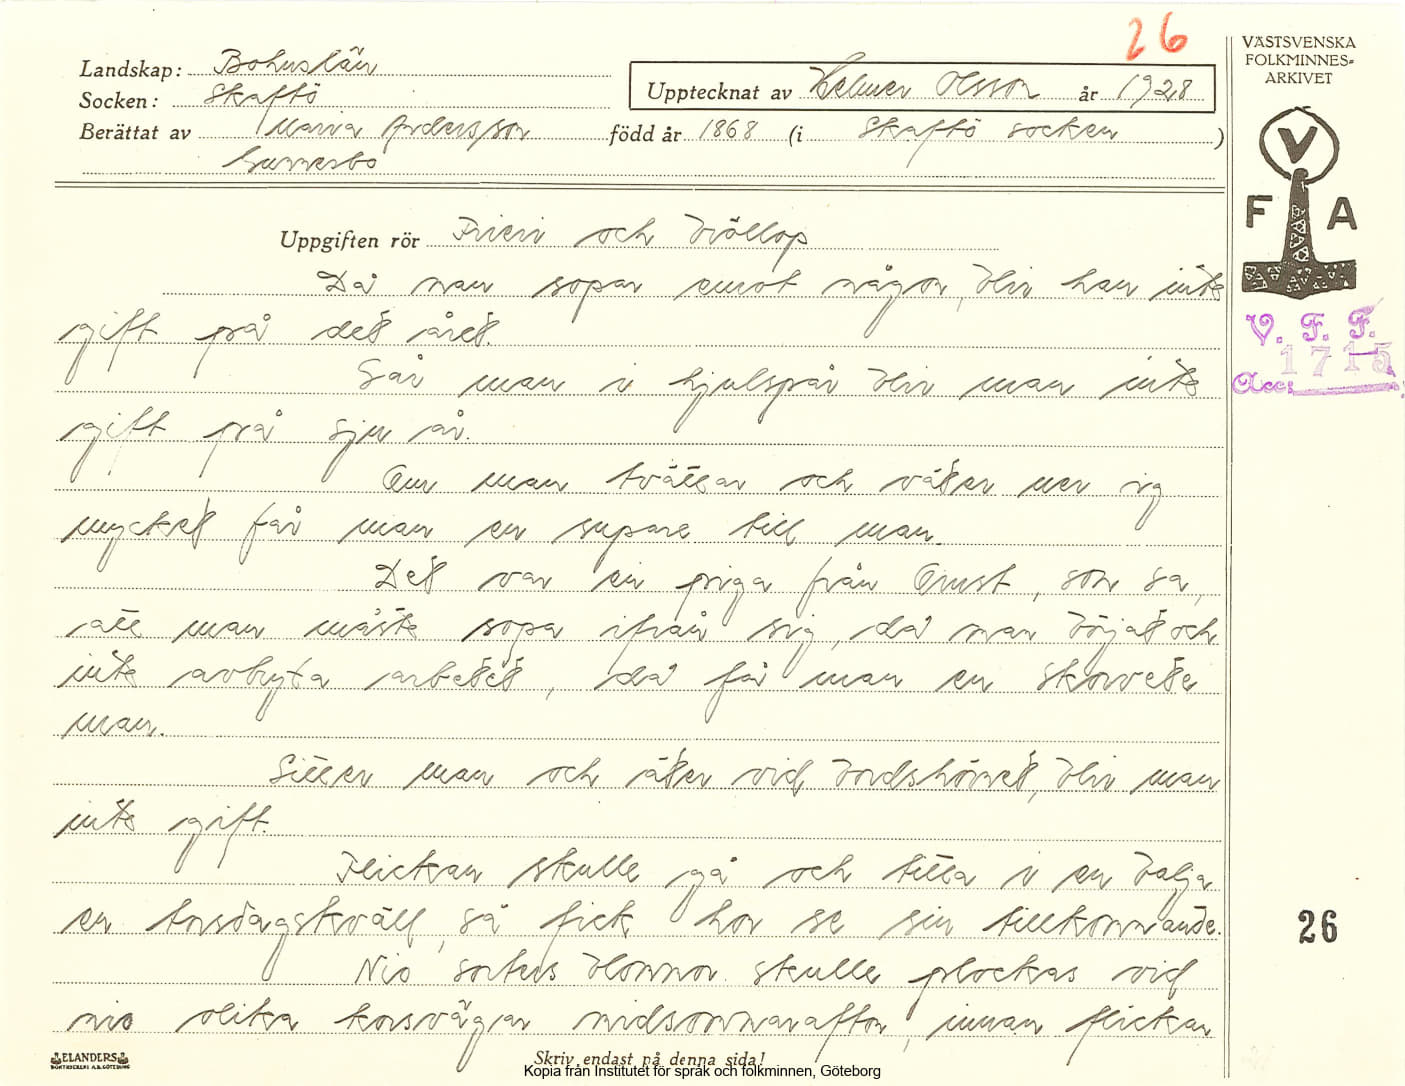 26
VÄSTSVENSKA
FOLKMINNES-
ARKIVET
Landskap: Bohuslän
Socken: Skaftö
Upptecknat av Helmer Olsson år 1928
Berättat av Maria Andersson född år 1868 (i Skaftö socken )
Gunnesbo
V
F A
Uppgiften rör Frieri och bröllop
Då man sopar emot någon, blir han inte
gift på det året.
V. F. F.
1715
Acc:
Går man i hjulspår blir man inte
gift på sju år.
Om man tvättar och väter ner sig
mycket får man en supare till man.
Det var en piga från Orust, som sa,
att man måste sopa ifrån sig, då man börjat och
inte avbryta arbetet, då får man en skorvete
man.
Sitter man och äter vid bordshörnet, blir man
inte gift.
Flickan skulle gå och titta i en balja
en torsdagskväll, så fick hon se sin tillkommande.
26
Nio sorters blommor skulle plockas vid
nio olika korsvägar midsommarafton, innan flickan
ELANDERS
BOKTRYCKERI A.B. GÖTEBORG
Skriv endast på denna sida!
Kopia från Institutet för språk och folkminnen, Göteborg